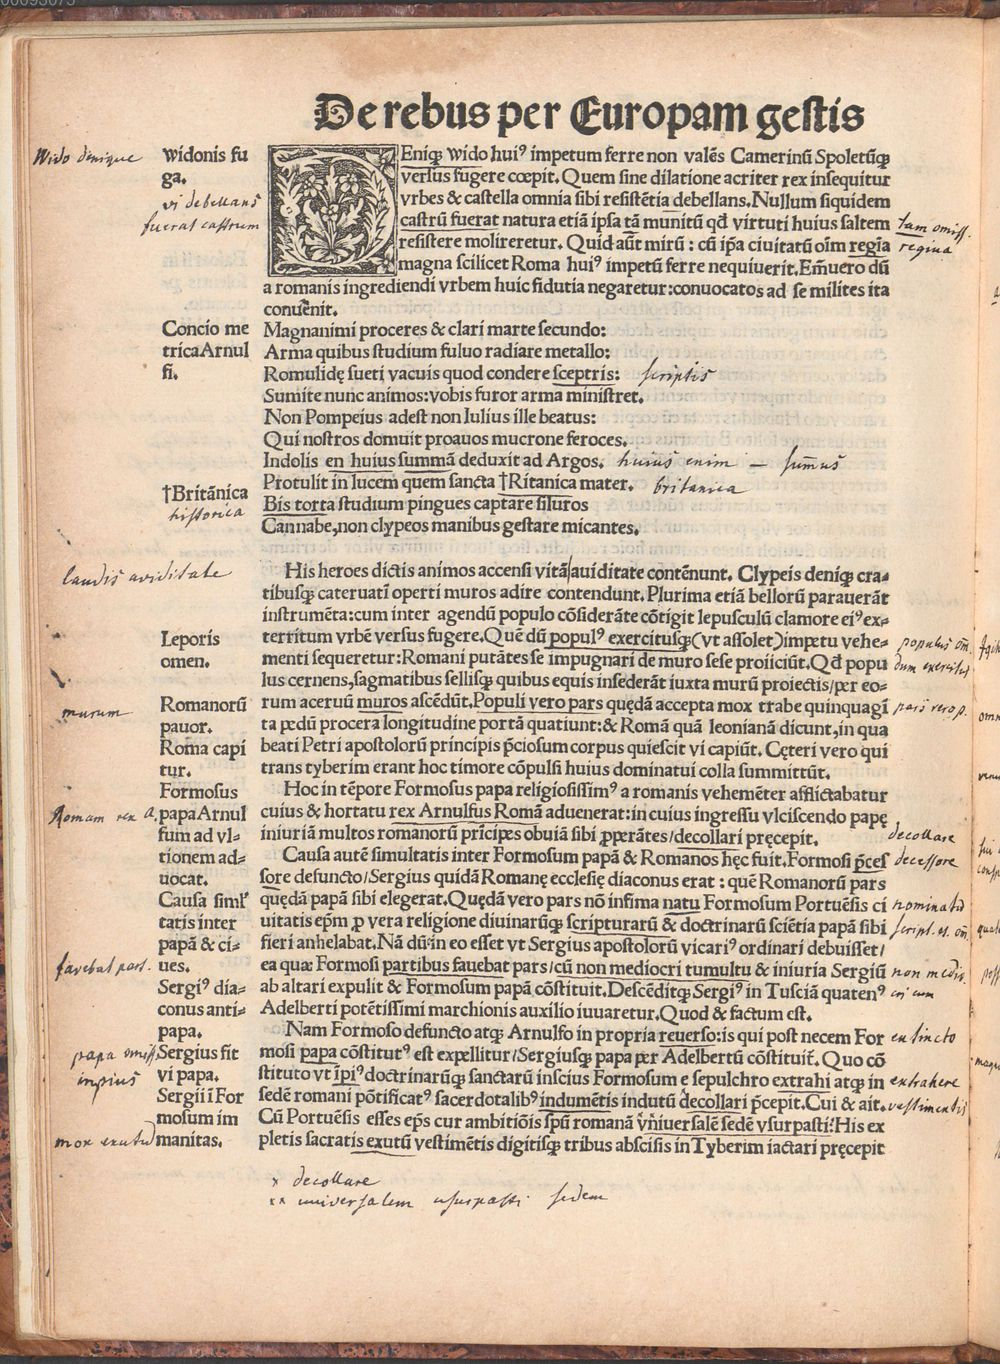 00093075
De rebus per Europam gestis
Wido denique
Widonis fu
ga.
vi debellans
fuerat castrum
Eniqꝫ Wido huiꝰ impetum ferre non valẽs Camerinũ Spoletũqꝫ
versus fugere cœpit. Quem sine dilatione acriter rex insequitur
vrbes & castella omnia sibi resistẽtia debellans. Nullum siquidem
castrũ fuerat natura etiã ipsa tã munitũ qđ virtuti huius saltem
resistere moliretur. Quid aũt mirũ: cũ ip̃a ciuitatũ oĩm regĩa
magna scilicet Roma huiꝰ impetũ ferre nequiuerit. Em̃uero dũ
a romanis ingrediendi vrbem huic fidutia negaretur: conuocatos ad se milites ita
conuẽnit.
tam omiss.
regina
Concio me
trica Arnul
fi.
Magnanimi proceres & clari marte secundo:
Arma quibus studium fuluo radiare metallo:
Romulidę sueti vacuis quod condere sceptris: scriptis
Sumite nunc animos: vobis furor arma ministret.
Non Pompeius adest non Iulius ille beatus:
Qui nostros domuit proauos mucrone feroces.
Indolis en huius summã deduxit ad Argos. huius enim – sum̃us
Protulit in lucem quem sancta †Ritanica mater. britanica
†Britãnica
historica
Bis torta studium pingues captare siluros
Cannabe, non clypeos manibus gestare micantes.
laudis aviditate
His heroes dictis animos accensi vitã/auiditate contẽnunt. Clypeis deniqꝫ cra-
tibusqꝫ cateruati operti muros adire contendunt. Plurima etiã bellorũ parauerãt
instrumẽta: cum inter agendũ populo cõsiderãte cõtigit lepusculũ clamore eiꝰ ex-
territum vrbẽ versus fugere. Quẽ dũ populꝰ exercitusqꝫ (vt assolet) impetu vehe-
menti sequeretur: Romani putãtes se impugnari de muro sese proiiciũt. Qđ popu
lus cernens, sagmatibus sellisqꝫ quibus equis insederãt iuxta murũ proiectis/per eo-
rum aceruũ muros ascẽdũt. Populi vero pars quędã accepta mox trabe quinquagĩ
ta pedũ procera longitudine portã quatiunt: & Romã quã leonianã dicunt, in qua
beati Petri apostolorũ principis p̃ciosum corpus quiescit vi capiũt. Cęteri vero qui
trans tyberim erant hoc timore cõpulsi huius dominatui colla summittũt.
Leporis
omen.
populus om̃.
dum exercitus
murum
Romanorũ
pauor.
Roma capi
tur.
pars vero p.
Formosus
papa Arnul
fum ad vl-
tionem ad-
uocat.
Romam rex A.
Hoc in tẽpore Formosus papa religiosissimꝰ a romanis vehemẽter afflictabatur
cuius & hortatu rex Arnulfus Romã aduenerat: in cuius ingressu vlciscendo papę
iniuriã multos romanorũ prĩcipes obuiã sibi ꝓperãtes/decollari pręcepit.
decollare
Causa autẽ simultatis inter Formosum papã & Romanos hęc fuit. Formosi p̃ces
sore defuncto/Sergius quidã Romanę ecclesię diaconus erat: quẽ Romanorũ pars
quędã papã sibi elegerat. Quędã vero pars nõ infima natu Formosum Portuẽsis ci
uitatis ep̃m ꝓ vera religione diuinarũqꝫ scripturarũ & doctrinarũ sciẽtia papã sibi
fieri anhelabat. Nã dũ in eo esset vt Sergius apostolorũ vicariꝰ ordinari debuisset/
ea quæ Formosi partibus fauebat pars/cũ non mediocri tumultu & iniuria Sergiũ
ab altari expulit & Formosum papã cõstituit. Descẽditqꝫ Sergiꝰ in Tusciã quatenꝰ
Adelberti potẽtissimi marchionis auxilio iuuaretur. Quod & factum est.
decessore
nominatũ
script. et. om̃.
non medio.
Causa simlꝰ
tatis inter
papã & ci-
ues.
favebat part.
Sergiꝰ dia-
conus anti-
papa.
Nam Formoso defuncto atqꝫ Arnulfo in propria reuerso: is qui post necem For
mosi papa cõstitutꝰ est expellitur/Sergiusqꝫ papa per Adelbertũ cõstituit̃. Quo cõ
stituto vt ĩpiꝰ doctrinarũqꝫ sanctarũ inscius Formosum e sepulchro extrahi atqꝫ in
sedẽ romani põtificatꝰ sacerdotalibꝰ indumẽtis indutũ decollari p̃cepit. Cui & ait.
Cũ Portuẽsis esses ep̃s cur ambitiõis spũ romanã vñiuersalẽ sedẽ vsurpasti? His ex
pletis sacratis exutũ vestimẽtis digitisqꝫ tribus abscisis in Tyberim iactari pręcepit
extincto
extrahere
vestimentis
papa omiss.
impius
Sergius fit
vi papa.
Sergii ĩ For
mosum im
manitas.
mox exutũ
x decollare
xx universalem usurpasti sedem